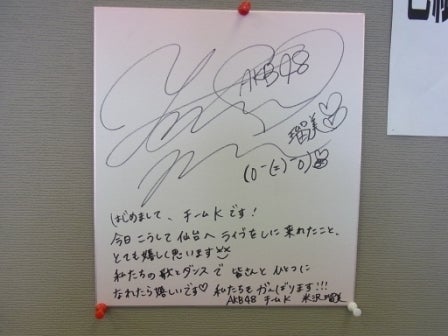 AKB48
瑠美♡
(o￣(エ)￣o)
はじめまして、チームKです!
今日こうして仙台へライヴをしに来れたこと、
とても嬉しく思います
私たちの歌とダンスで皆さんとひとつに
なれたら嬉しいです♡ 私たちもがんばります!!!
AKB48 チームK 米沢瑠美